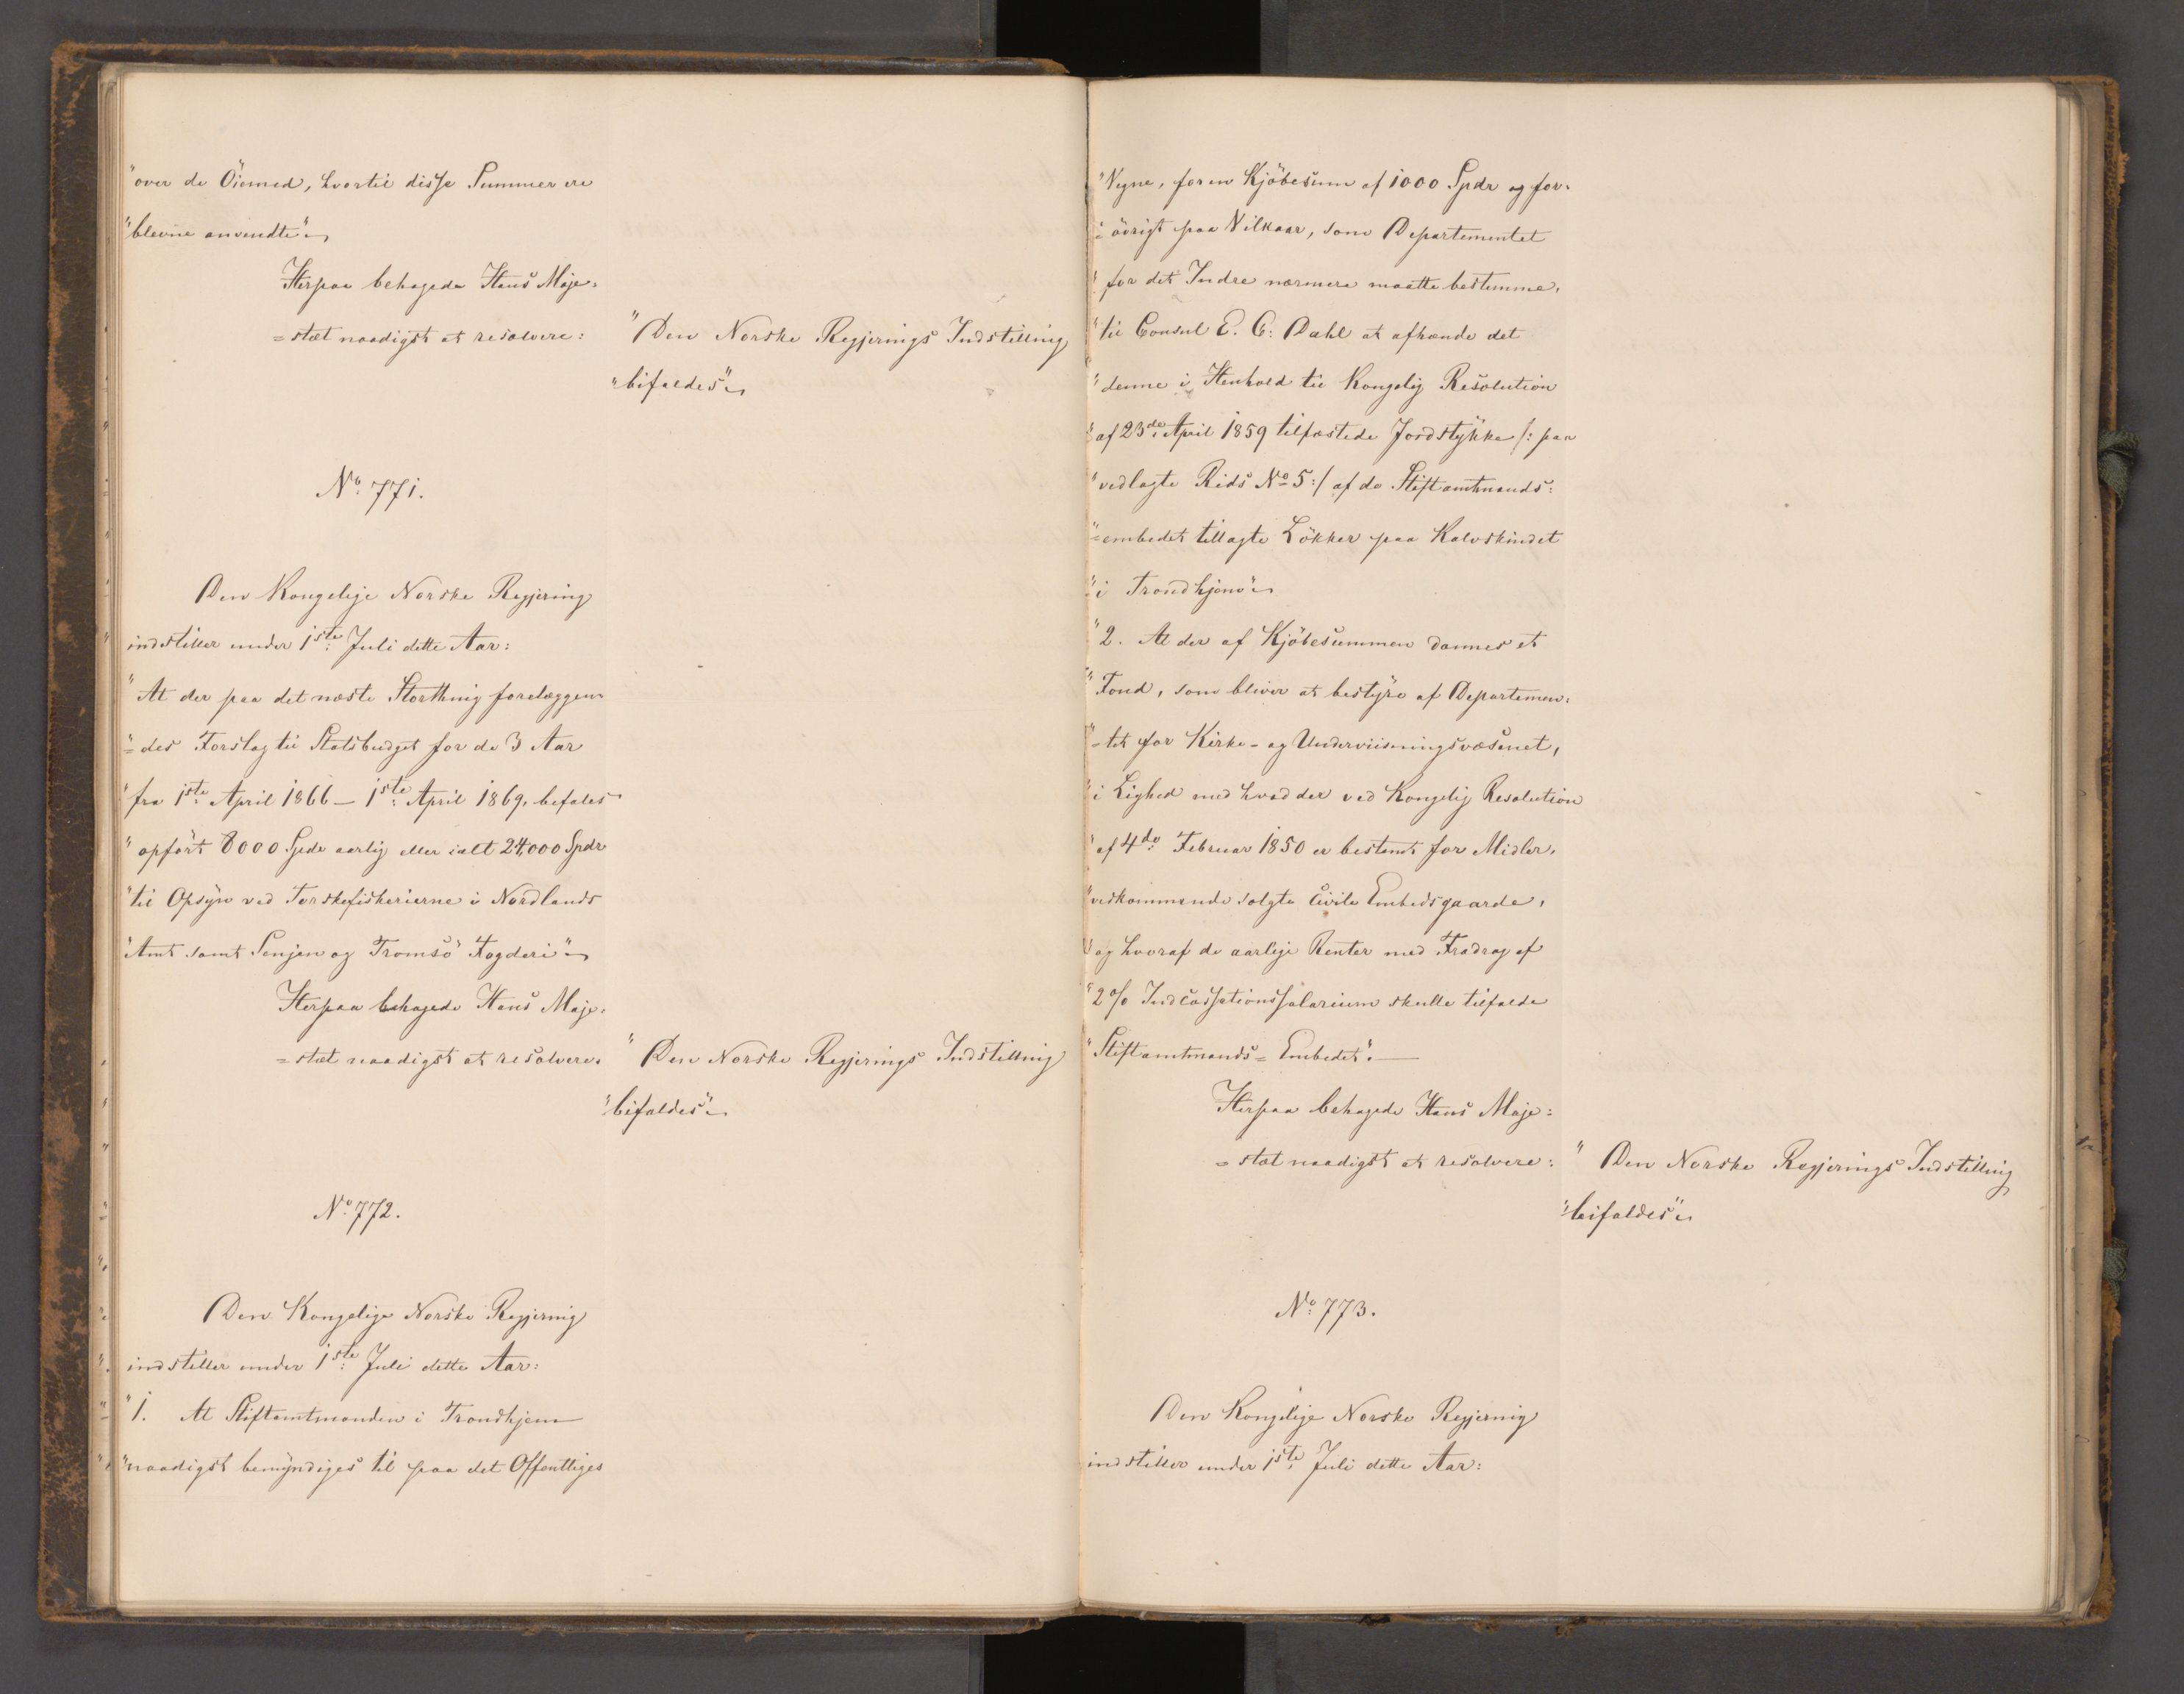 "over de Öiemed, hvortil disse Summer ere
"blevne anvendte".
Herpaa behagede Hans Maje=
=stæt naadigst at resolvere:
"Den Norske Regjerings Indstilling
"bifaldes".
No 771.
Den Kongelige Norske Regjering
indstiller under 1ste Juli dette Aar:
"At der paa det næste Storthing forelæggen=
"=des Forslag til Statsbudget for de 3 Aar
"fra 1ste April 1866 – 1ste April 1869, befales
"opført 8000 Spdr aarlig eller ialt 24,000 Spdr
"til Opsyn ved Torskefiskerierne i Nordlands
"Amt samt Senjen og Tromsö Fogderi".
Herpaa behagede Hans Maje=
=stæt naadigst at resolvere:
"Den Norske Regjerings Indstilling
"bifaldes".
No 772.
Den Kongelige Norske Regjering
indstiller under 1ste Juli dette Aar:
"1. At Stiftamtmanden i Trondhjem
"naadigst bemyndiges til paa det Offentliges
"Vegne, for en Kjöbesum af 1000 Spdr og for=
"=övrigt paa Vilkaar, som Departementet
"for det Indre nærmere maatte bestemme,
"til Consul E. C: Dahl at afhænde det
"denne i Henhold til Kongelig Resolution
"af 23de April 1859 tilfæstede Jordstykke /: paa
"vedlagte Rids No 5 :/ af de Stiftamtmands=
"=embedet tillagte Lökker paa Kalvskindet
"i Trondhjem".
"2. At der af Kjöbesummen dannes et
"Fond, som bliver at bestyre af Departemen=
"=tet for Kirke- og Underviisningsvæsenet,
"i Lighed med hvad der ved Kongelig Resolution
"af 4de Februar 1850 er bestemt for Midler,
"vedkommende solgte civile Embedsgaarde,
"og hvoraf de aarlige Renter med Fradrag af
"2% Indcassationssalarium skulle tilfalde
"Stiftamtmands=Embedet".
Herpaa behagede Hans Maje=
=stæt naadigst at resolvere:
"Den Norske Regjerings Indstilling
"bifaldes".
No 773.
Den Kongelige Norske Regjering
indstiller under 1ste Juli dette Aar: